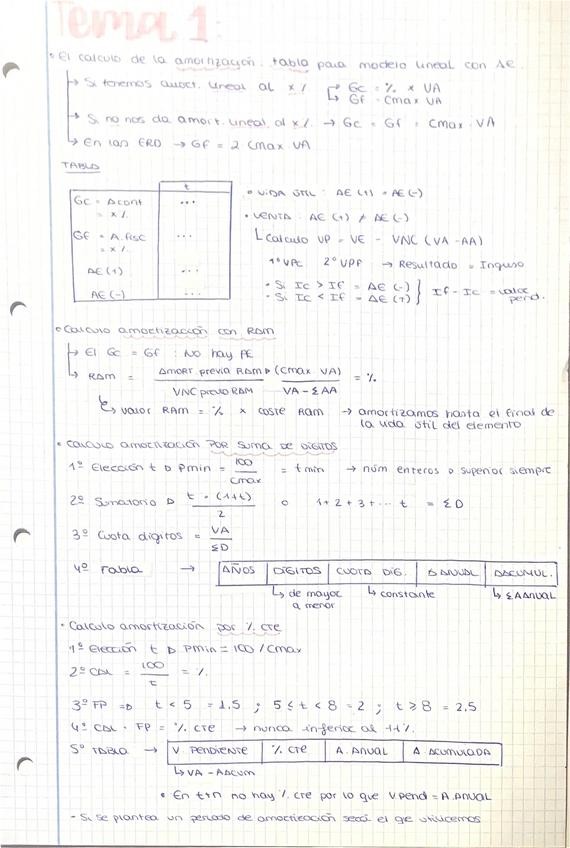 Tema 1:
• El calculo de la amortización: tabla para modelo lineal con AE.
↳ Si tenemos amort. lineal al x% → Gc = % × VA
↳ Gf = Cmax VA
↳ Si no nos da amort. lineal al x% → Gc = Gf = Cmax · VA
↳ En las ERD → Gf = 2 Cmax VA
TABLA
t
GC = A cont = x%
...
GF = A. fisc = x%
...
AE (+)
...
AE (-)
...
• VIDA ÚTIL: AE (+) = AE (-)
• VENTA: AE (+) ≠ AE (-)
↳ calculo VP = VE - VNC (VA - AA)
1º VPC 2º VPF → Resultado = Ingreso
• Si Ic > If = AE (-)
• Si Ic < If = AE (+)
} If - Ic = valor pend.
• Calculo amortización con RAM
↳ El Gc = Gf : No hay
↳ RAM = Amort previa RAM ▷ (Cmax VA) / VNC previo RAM VA - ΣAA = %
↳ valor RAM = % × coste RAM → amortizamos hasta el final de
la vida útil del elemento
• Calculo amortización POR SUMA DE DIGITOS
1º Elección t ▷ Pmin = 100 / Cmax = t min → núm enteros ▷ superior siempre
2º Sumatorio ▷ t · (1+t) / 2 o 1+2+3+... t = ΣD
3º Cuota digitos = VA / ΣD
4º Tabla → AÑOS | DÍGITOS | CUOTA DIG. | A ANUAL | AACUMUL.
↳ de mayor a menor ↳ constante ↳ ΣAANUAL
• Calculo amortización por % cte
1º Elección t ▷ Pmin = 100 / Cmax
2º CAL = 100 / t = %
3º FP => t < 5 = 1,5 ; 5 ≤ t < 8 = 2 ; t ≥ 8 = 2,5
4º CAL · FP = % cte → nunca inferior al 11%
5º TABLA → V. PENDIENTE | % CTE | A. ANUAL | A. ACUMULADA
↳ VA - AACUM
• En t=n no hay % cte por lo que V pend = A. ANUAL
- Si se plantea un periodo de amortización será el que utilicemos